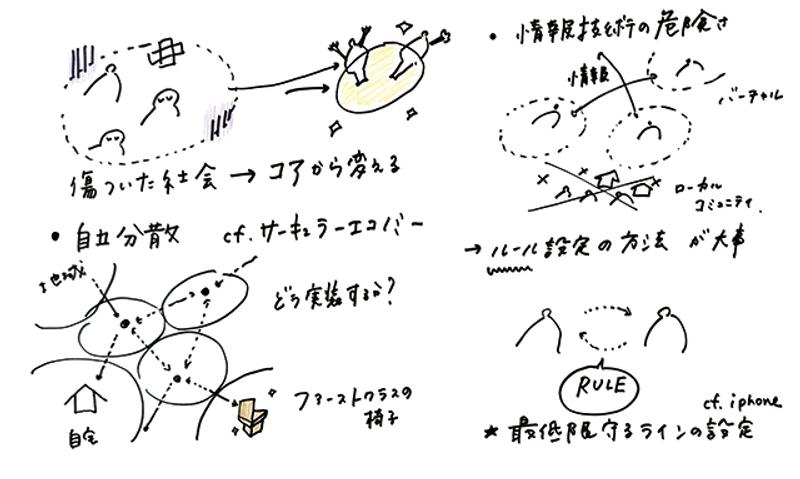 傷ついた社会 → コアから変える
• 自立分散 cf. サーキュラーエコノミー
地域
どう実装するか?
ファーストクラスの
椅子
自宅
• 情報技術の危険さ
情報
バーチャル
ローカル
コミュニティ.
→ ルール設定の方法 が大事
RULE
cf. iphone
★ 最低限守るラインの設定